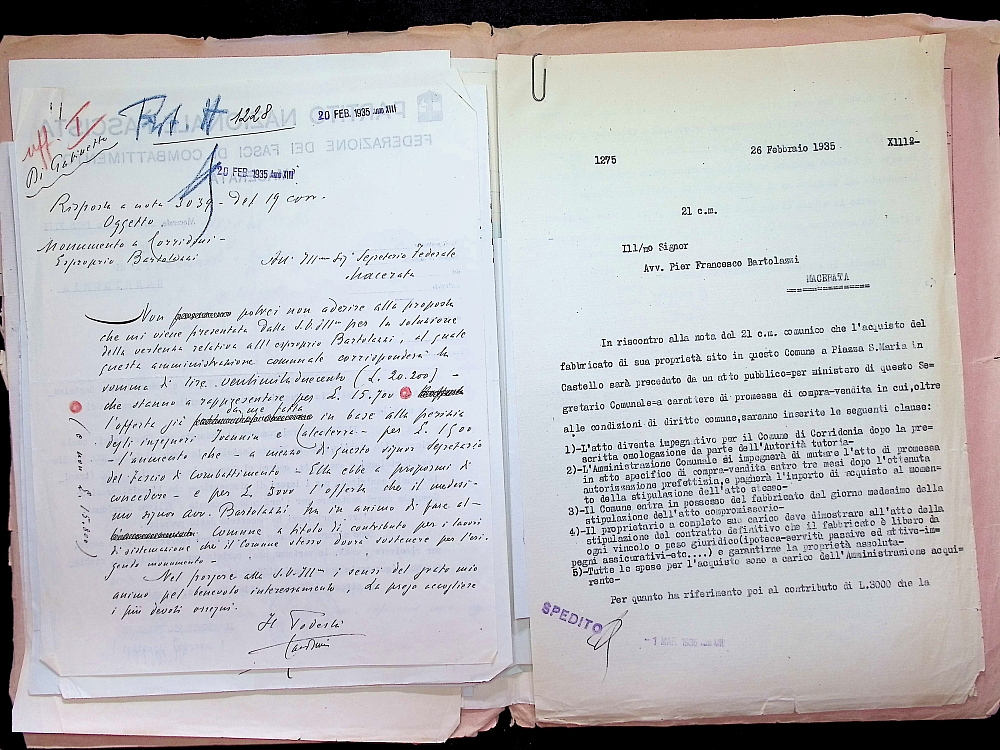 uff I
Di Gabinetto
1228
20 FEB. 1935 Anno XIII
PARTITO NAZIONALE FASCISTA
FEDERAZIONE DEI FASCI DI COMBATTIMENTO
20 FEB. 1935 Anno XIII
Risposta a nota 3039 - del 19 corr.
Oggetto
Monumento a Corridoni -
Esproprio Bartolazzi
All' Ill^mo Sig^r Segretario Federale
Macerata
Non potrei non aderire alla proposta
che mi viene presentata dalla S.V. Ill^ma per la soluzione
della vertenza relativa all'esproprio Bartolazzi, al quale
questa amministrazione comunale corrisponderà la
somma di lire ventimiladuecento (L. 20.200) -
che stanno a rappresentare per L. 15.700
l'offerta già da me fatta in base alla perizia
degli ingegneri Joannin e Calcaterra - per L. 1500
- l'aumento che - a mezzo di questo signor Segretario
del fascio di Combattimento - Ella ebbe a propormi di
concedere - e per L. 3000 l'offerta che il medesi-
mo signor avv. Bartolazzi ha in animo di fare al-
Comune a titolo di contributo per i lavori
di sistemazione che il Comune stesso dovrà sostenere per l'eri-
gendo monumento -
(e non L. 15.800)
Nel porgere alla S.V. Ill^ma i sensi del grato mio
animo pel benevolo interessamento, La prego accogliere
i più devoti ossequi.
Il Podestà
1275
26 Febbraio 1935
XIII^-
21 c.m.
Ill/mo Signor
Avv. Pier Francesco Bartolazzi
MACERATA
In riscontro alla nota dal 21 c.m. comunico che l'acquisto del
fabbricato di sua proprietà sito in questo Comune a Piazza S.Maria in
Castello sarà preceduto da un atto pubblico=per ministero di questo Se-
gretario Comunale=a carattere di promessa di compra-vendita in cui,oltre
alle condizioni di diritto comune,saranno inserite le seguenti clause:
1)-L'atto diventa impegnativo per il Comune di Corridonia dopo la pre-
scritta omologazione da parte dell'Autorità tutoria-
2)-L'Amministrazione Comunale si impegnerà di mutare l'atto di promessa
in atto specifico di compra-vendita entro tre mesi dopo l'ottenuta
autorizzazione prefettizia,e pagherà l'importo di acquisto al momen-
to della stipulazione dell'atto stesso-
3)-Il Comune entra in possesso del fabbricato dal giorno medesimo della
stipulazione dell'atto compromissorio-
4)-Il proprietario a completo suo carico deve dimostrare all'atto della
stipulazione del contratto definitivo che il fabbricato è libero da
ogni vincolo o peso giuridico(ipoteca-servitù passive ed attive-im-
pegni assicurativi-etc....) e garantirne la proprietà assoluta-
5)-Tutte le spese per l'acquisto sono a carico dell'Amministrazione acqui-
rente-
Per quanto ha riferimento poi al contributo di L.3000 che la
SPEDITO
- 1 MAR 1935 Anno XIII